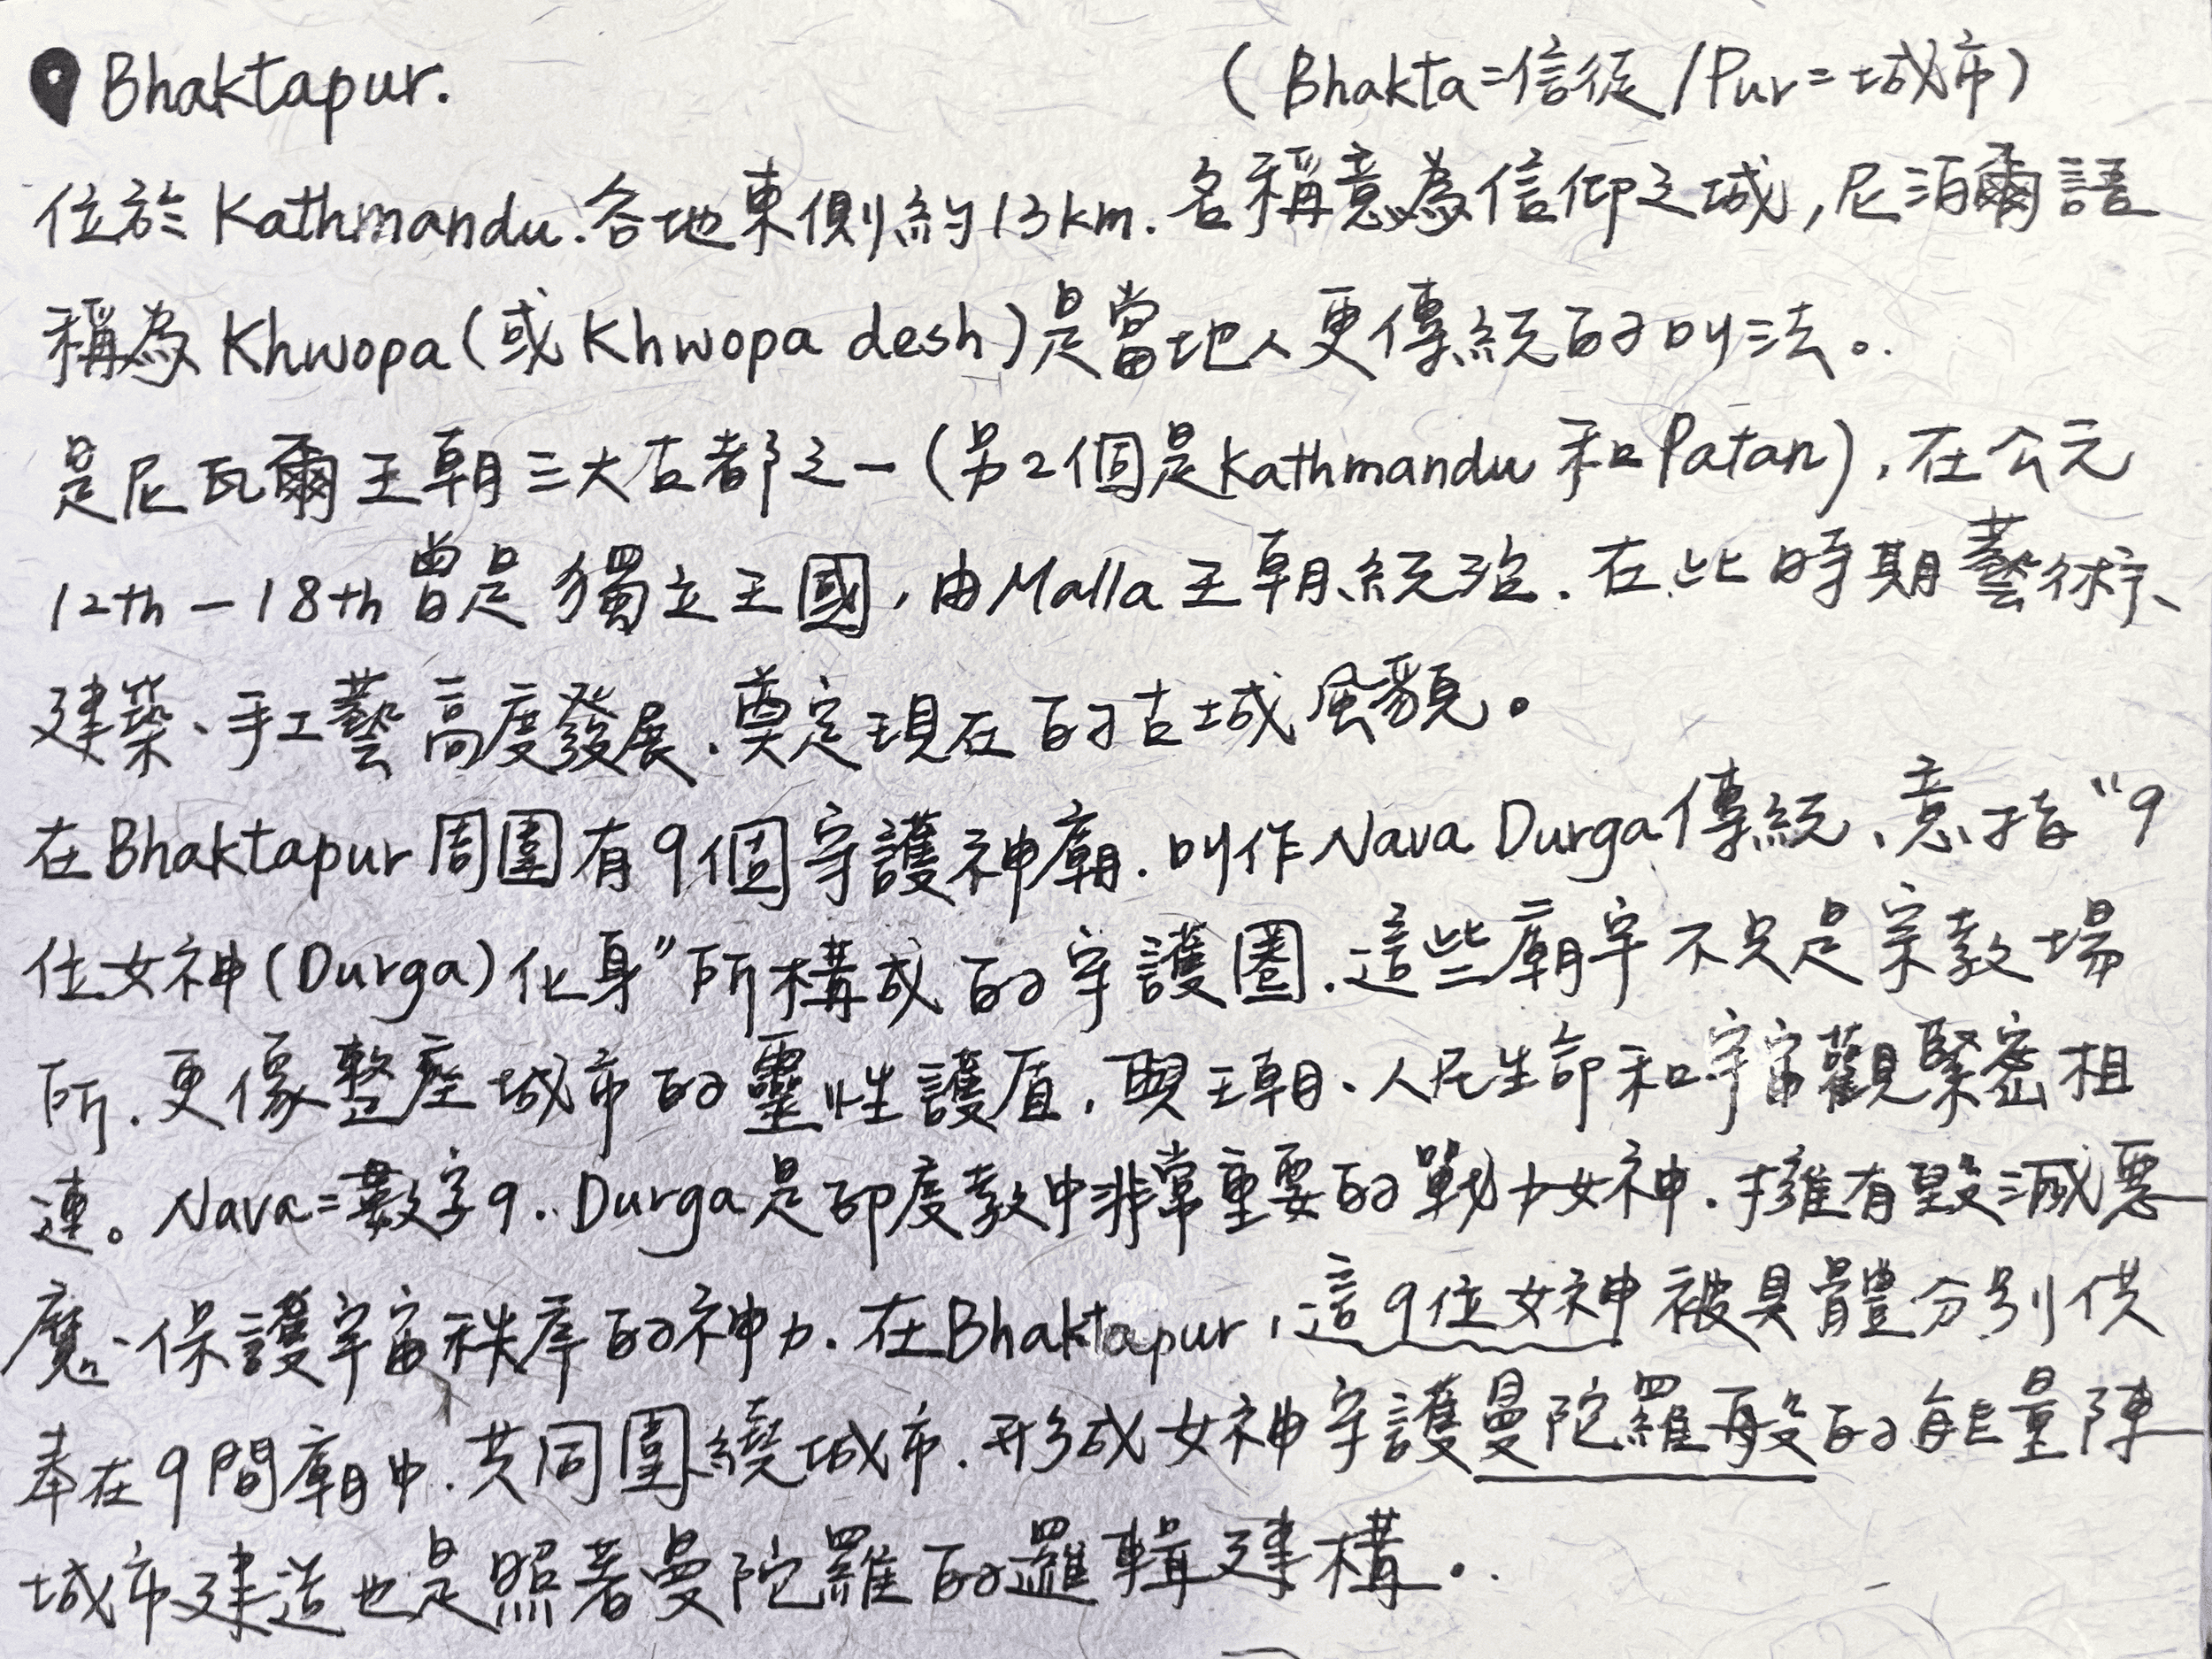 Bhaktapur. (Bhakta=信徒/Pur=城市)
位於Kathmandu.谷地東側約13km.名稱意為信仰之城,尼泊爾語
稱為Khwopa(或Khwopa desh)是當地人更傳統的叫法。
是尼瓦爾王朝三大古都之一(另2個是Kathmandu和Patan),在公元
12th-18th曾是獨立王國,由Malla王朝統治.在此時期藝術、
建築、手工藝高度發展.奠定現在的古城風貌。
在Bhaktapur周圍有9個守護神廟.叫作Nava Durga傳統、意指"9
位女神(Durga)化身"所構成的守護圈.這些廟宇不只是宗教場
所.更像整座城市的靈性護盾,與王朝、人民生命和宇宙觀緊密相
連。Nava=數字9..Durga是印度教中非常重要的戰力女神.擁有毀滅惡
魔、保護宇宙秩序的神力.在Bhaktapur,這9位女神被具體分別供
奉在9間廟中.共同圍繞城市.形成女神守護曼陀羅般的能量陣
城市建造也是照著曼陀羅的邏輯建構。